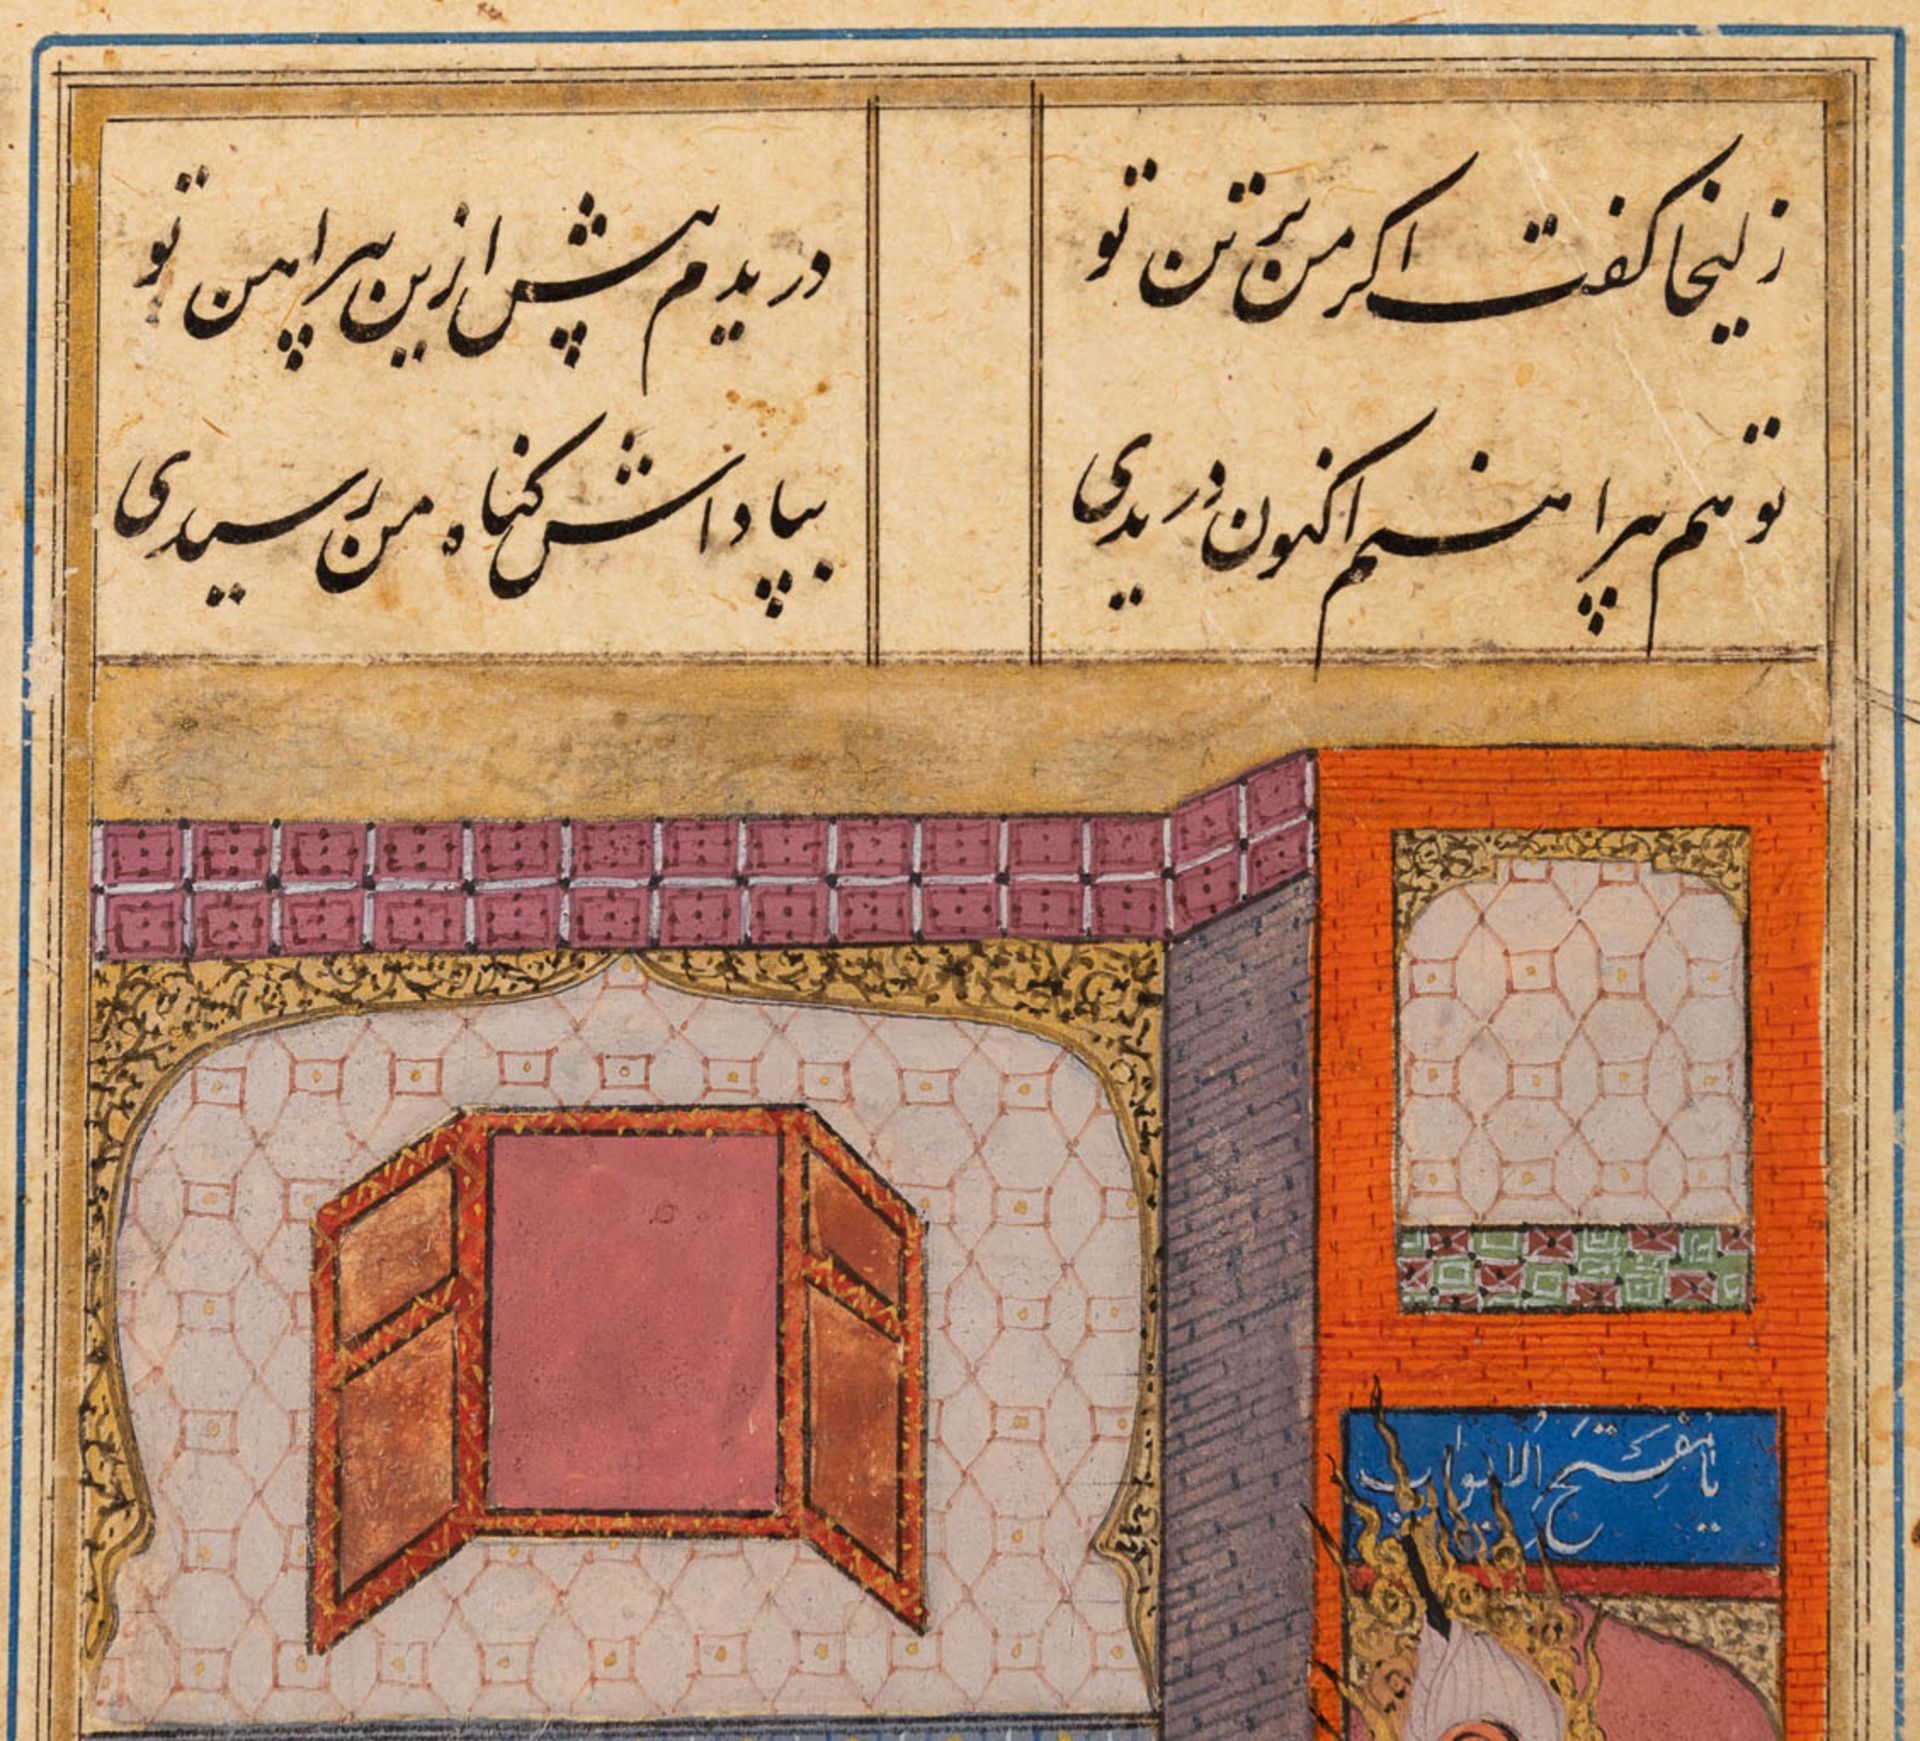 زلیخا گفت اکر من بر تن تو
دریدم پیش ازین پیراهن تو
تو هم پیراهنم اکنون دریدی
بپاداش کناه من رسیدی
یا مفتح الابواب